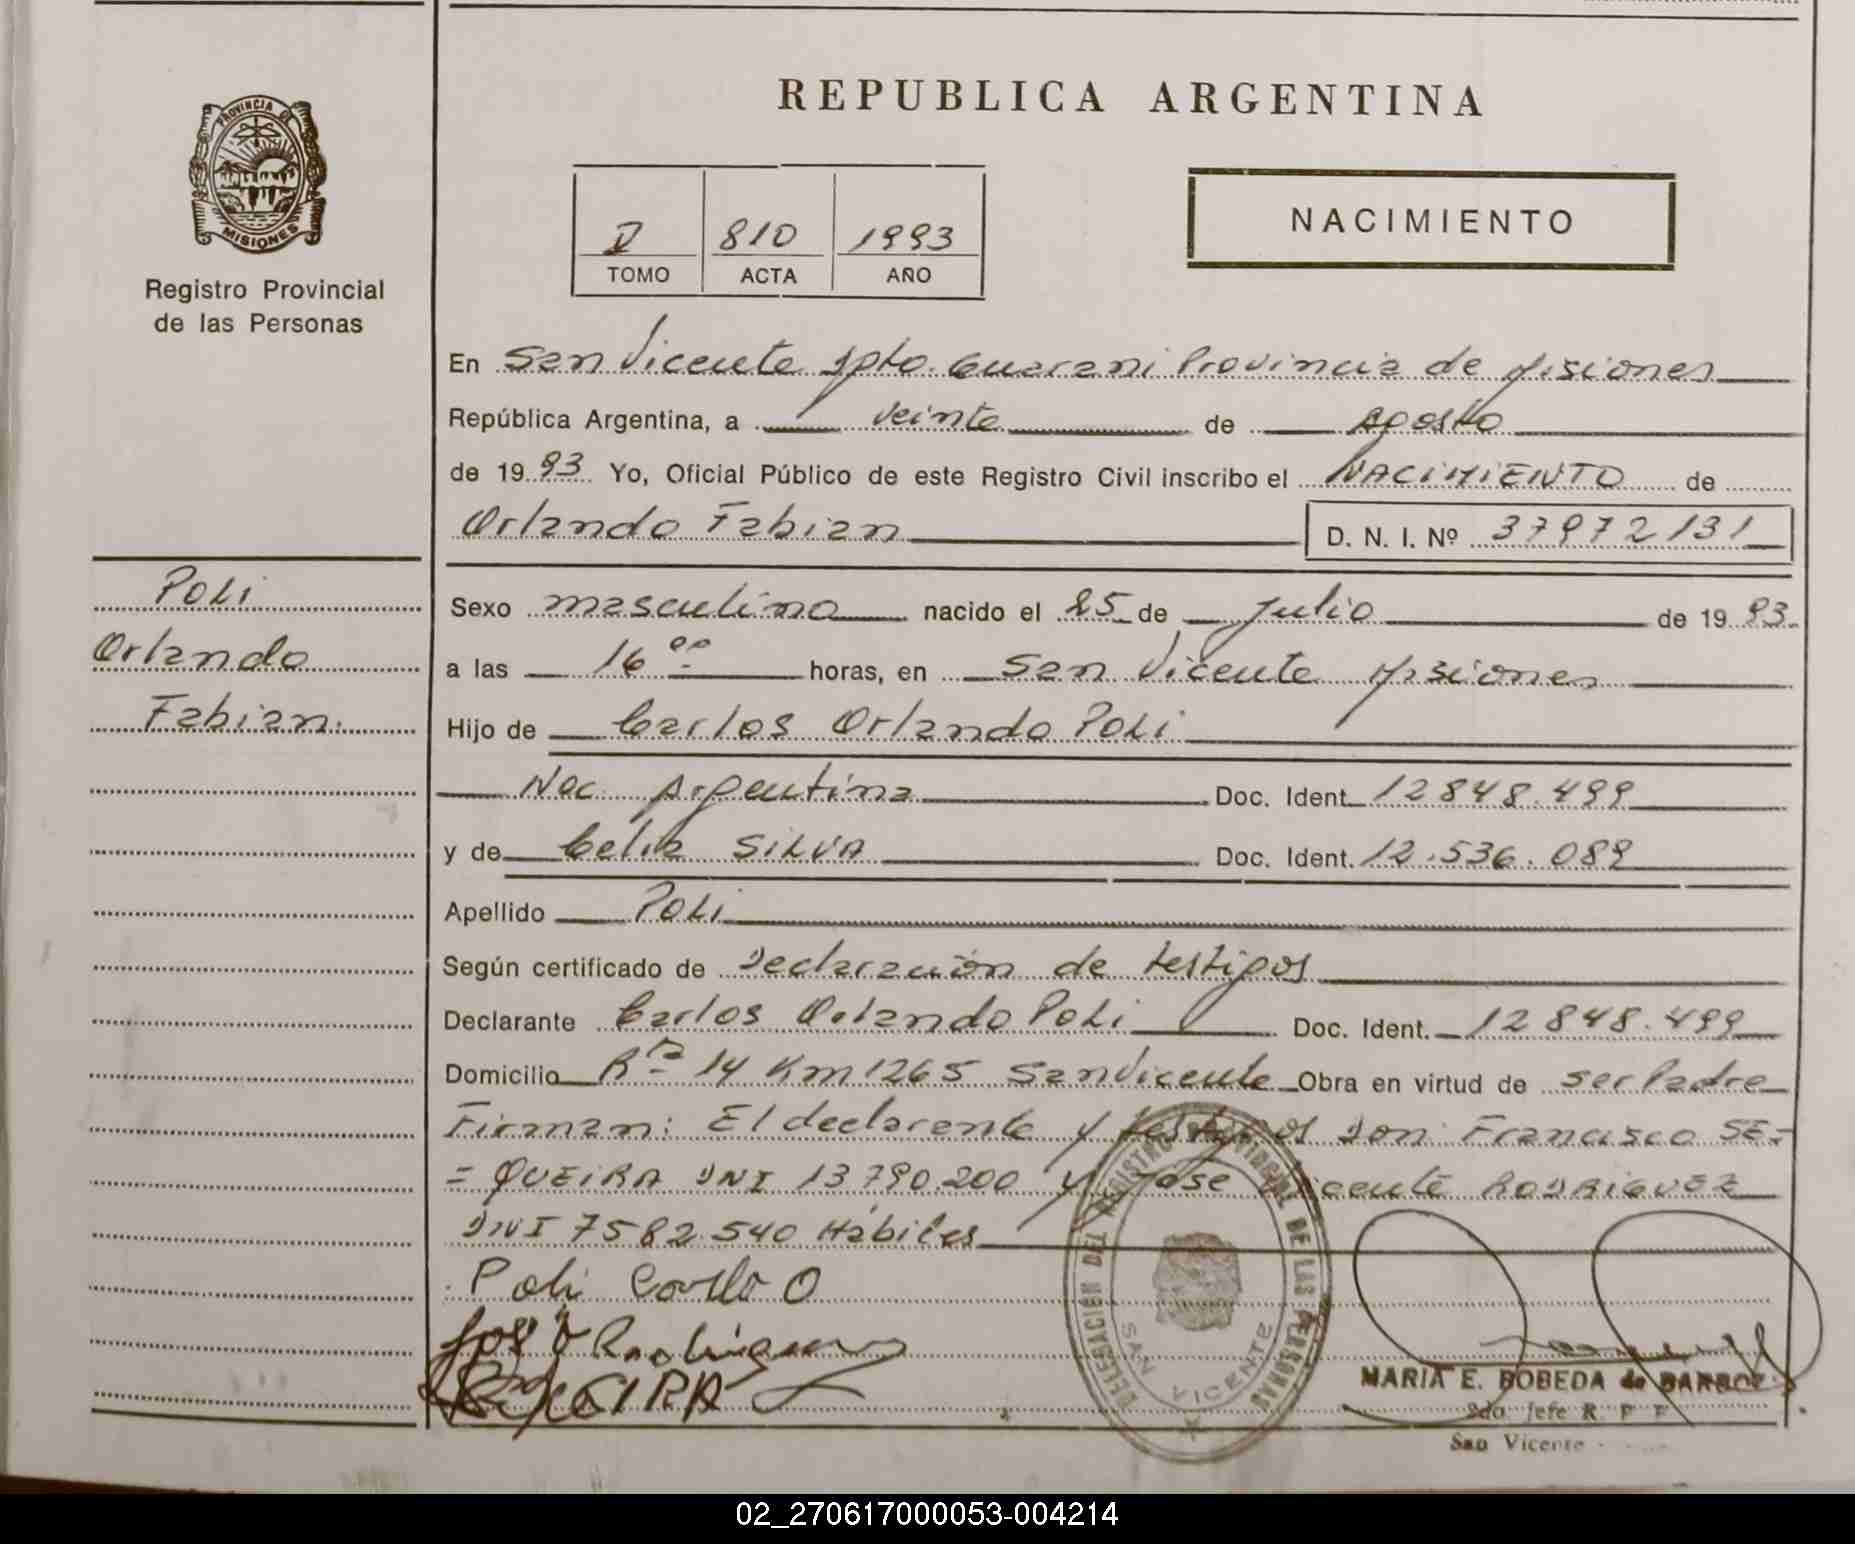 REPUBLICA ARGENTINA
PROVINCIA DE
MISIONES
Registro Provincial
de las Personas
810 1993
TOMO ACTA AÑO
NACIMIENTO
En San Vicente Dpto. Guarani Provincia de Misiones
República Argentina, a veinte de Agosto
de 1993 Yo, Oficial Público de este Registro Civil inscribo el NACIMIENTO de
Orlando Fabian D. N. I. Nº 37972131
Poli
Orlando
Fabian.
Sexo masculino nacido el 25 de Julio de 1993.
a las 16 00 horas, en San Vicente Misiones
Hijo de Carlos Orlando Poli
Nac. Argentina Doc. Ident. 12848.499
y de Celia SILVA Doc. Ident. 12.536.089
Apellido Poli
Según certificado de Declaración de testigos
Declarante Carlos Orlando Poli Doc. Ident. 12848.499
Domicilio Rta 14 Km 1265 San Vicente Obra en virtud de ser Padre
Firman: El declarante y testigos Don Francisco SE=
= QUEIRA DNI 13790.200 y Jose Vicente RODRIGUEZ
DNI 7582.540 Hábiles
Poli Carlo O
José V Rodriguez
DELEGACIÓN DEL REGISTRO PROVINCIAL DE LAS PERSONAS
SAN VICENTE
MARIA E. BOBEDA de BARBOZ
2do. Jefe R. P. P.
San Vicente
02_270617000053-004214